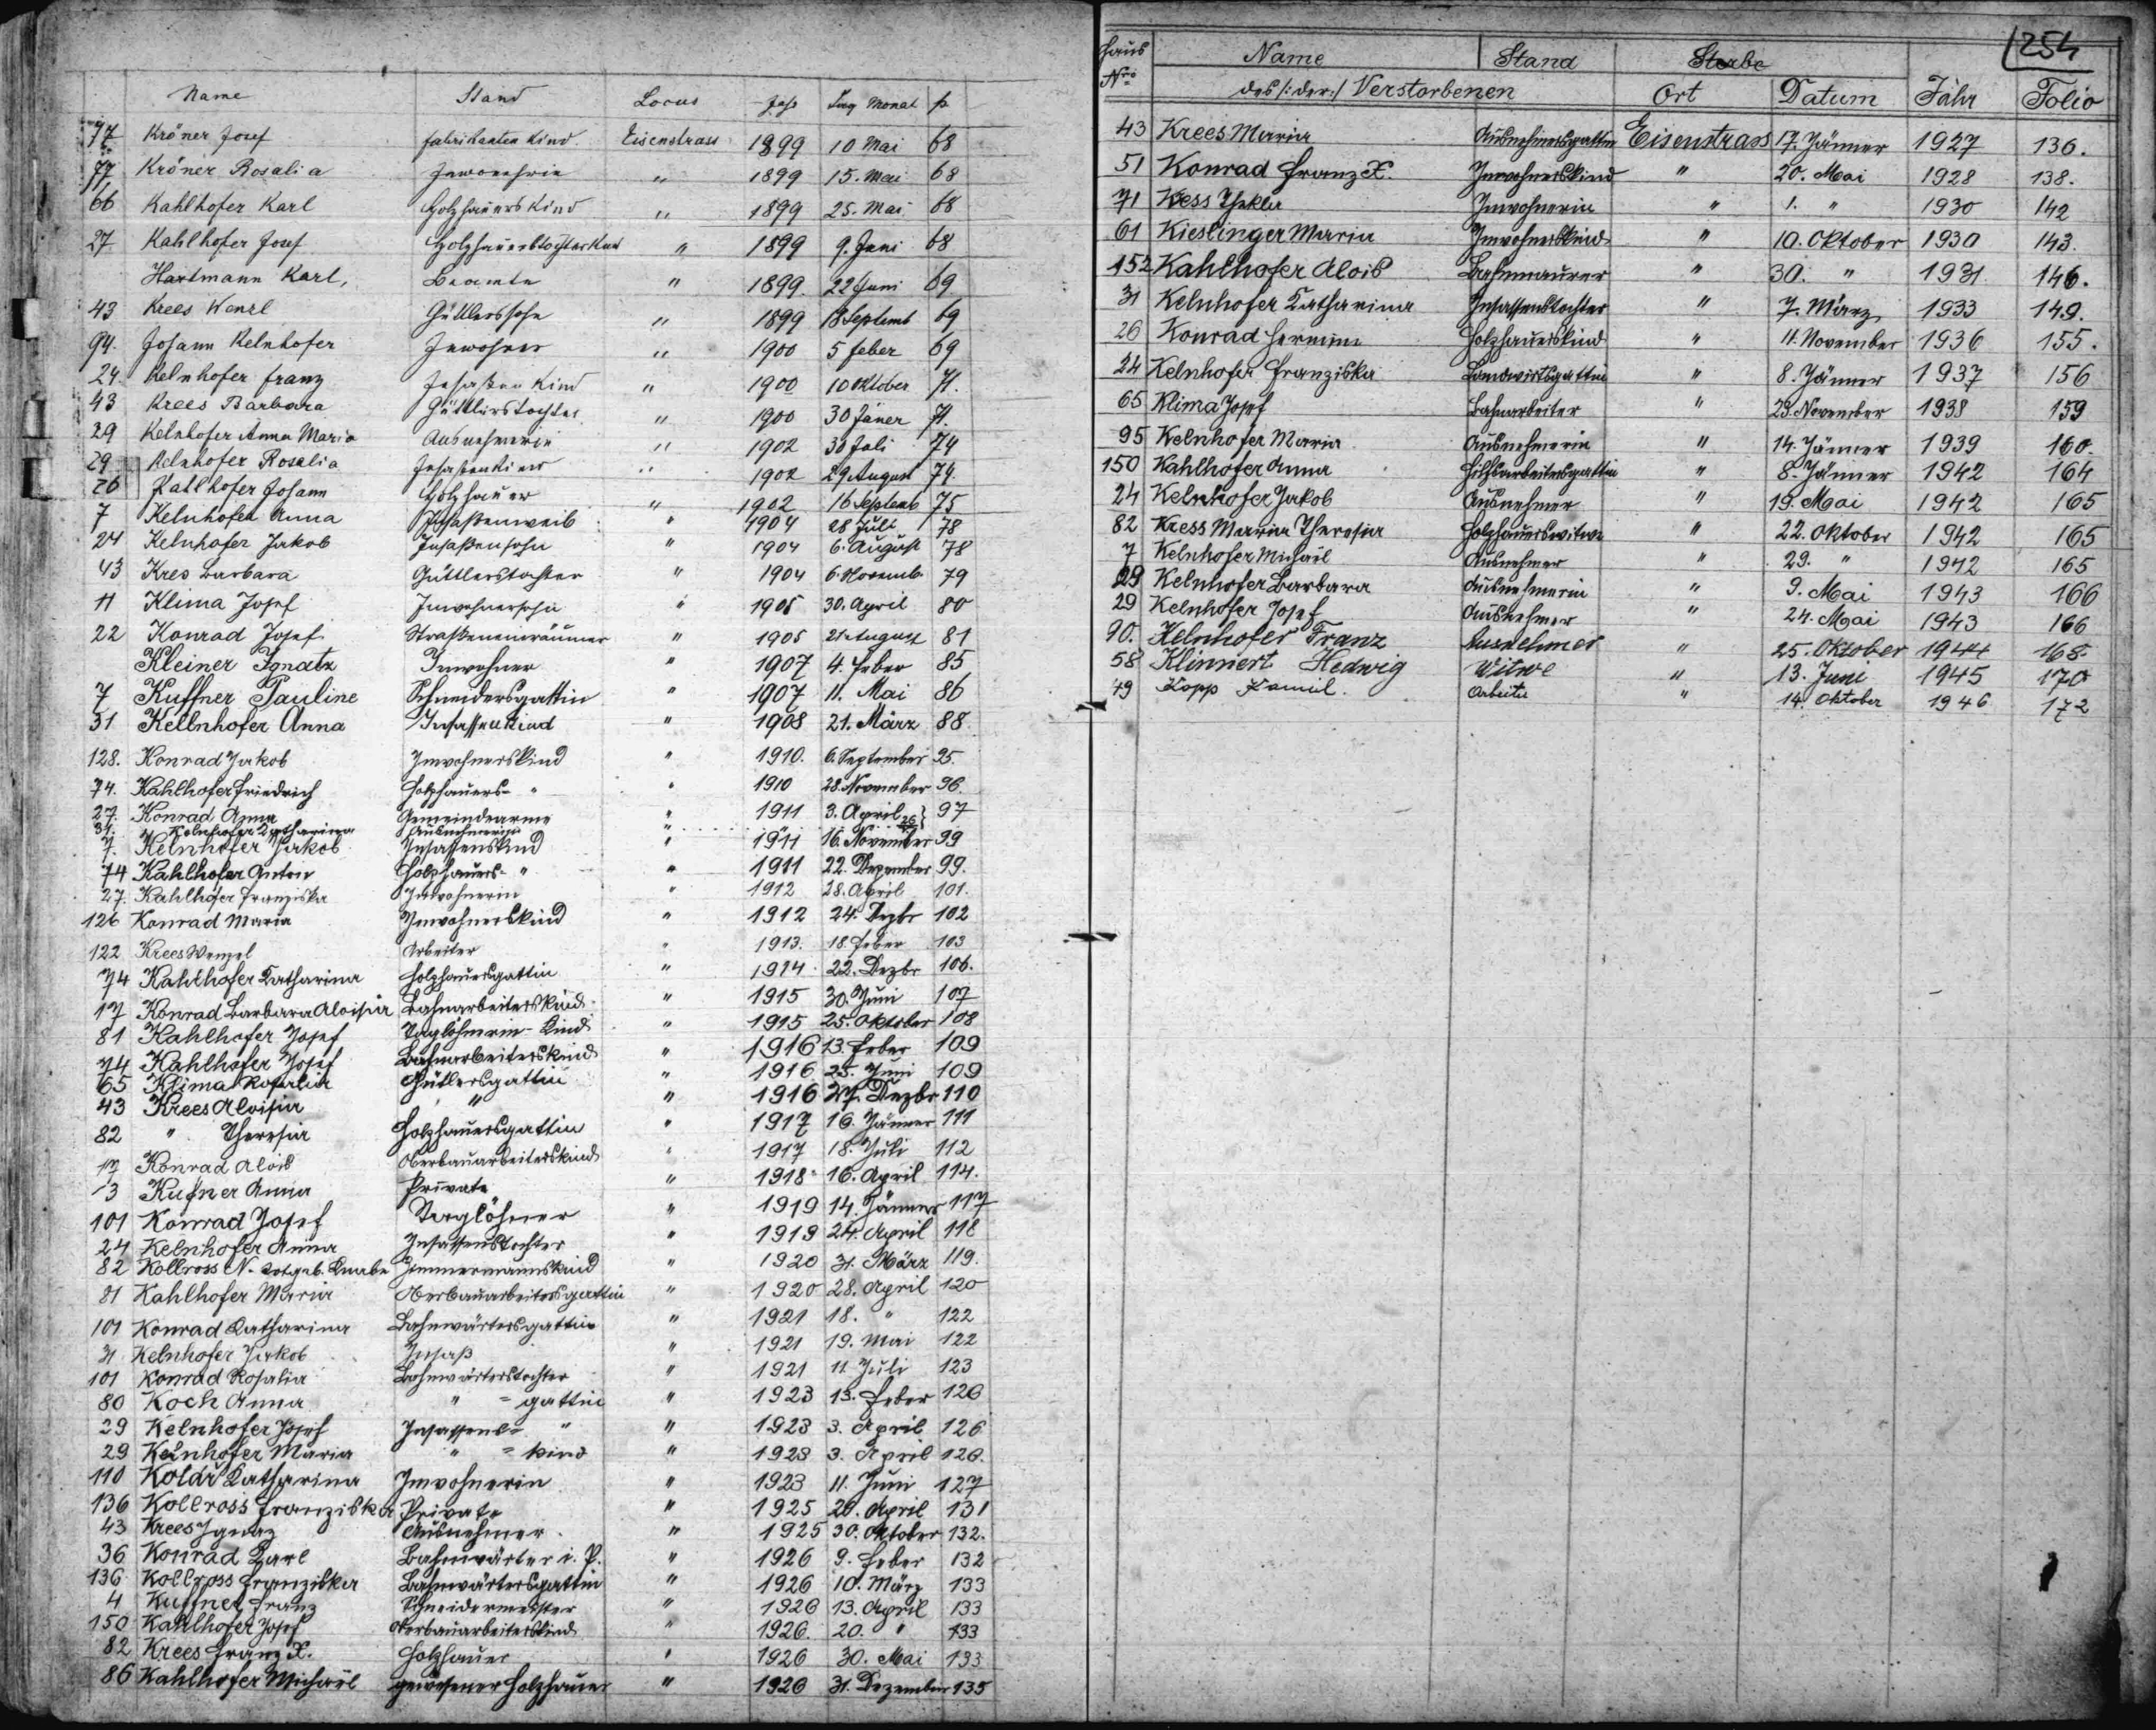 Name Stand Locus Jahr Tag Monat p
77 Kröner Josef fabrikanten Kind Eisenstrass 1899 10 Mai 68
77 Kröner Rosalia Inwohnerin " 1899 15. Mai 68
66 Kahlhofer Karl Holzhauers Kind " 1899 25. Mai 68
27 Kahlhofer Josef Holzhauerstochter " 1899 9. Juni 68
Hartmann Karl, Beamte " 1899 22 Juni 69
43 Krees Wenzl Güttlerssohn " 1899 13 Septemb 69
94. Johann Kelnhofer Inwohner " 1900 5 feber 69
24. Kelnhofer franz Insaßen Kind " 1900 10 Oktober 71.
43 Krees Barbara Güttlerstochter " 1900 30 Jäner 71.
29 Kelnhofer Anna Maria Ausnehmerin " 1902 30 Juli 74
29 Kelnhofer Rosalia " 1902 29 August 74.
26 Kahlhofer Johann Holzhauer " 1902 16 Septemb 75
7 Kelnhofer Anna Insaßenweib " 1904 28 Juli 78
24 Kelnhofer Jakob Insaßensohn " 1904 6. August 78
43 Kres Barbara Güttlerstochter " 1904 6. Novemb. 79
11 Klima Josef Inwohnersohn " 1905 30. April 80
22 Konrad Josef Straßeneinräumer " 1905 21 August 81
Kleiner Ignatz Inwohner " 1907 4. Feber 85
7 Kuffner Pauline Schneidersgattin " 1907 11. Mai 86
31 Kellnhofer Anna Insassenkind " 1908 21. März 88.
128. Konrad Jakob Inwohnerskind " 1910. 6. September 95.
74. Kahlhofer Friedrich Holzhauers- " " 1910 28. November 96.
27. Konrad Anna Gemeindearme " 1911 3. April } 97
31. Kelnhofer Katharina Ausnehmerin " 26
7. Kelnhofer Jakob Insassenskind " 1911 16. November 99
74 Kahlhofer Anton Holzhauers- " " 1911 22. Dezember 99.
27. Kahlhofer Franziska Inwohnerin " 1912 28. April 101.
126 Konrad Maria Inwohnerskind " 1912 24. Dezbr 102
122 Krees Wenzel Arbeiter " 1913. 18. Feber 103
74 Kahlhofer Katharina Holzhauersgattin " 1914. 22. Dezbr 106.
17 Konrad Barbara Aloisia Bahnarbeiterskind " 1915 30. Juni 107
81 Kahlhofer Josef Taglöhnerin-Kind " 1915 25. Oktober 108
74 Kahlhofer Josef Bahnarbeiterskind " 1916 13. Feber 109
65 Klima Rosalia Gütlersgattin " 1916 25. Juni 109
43 Krees Aloisia " " 1916 27. Dezbr 110
82 " Theresia Holzhauersgattin " 1917 16. Jänner 111
17 Konrad Alois Oberbauarbeiterskind " 1917 18. Juli 112
3 Kufner Anna Private " 1918 16. April 114.
101 Konrad Josef Taglöhner " 1919 14. Jänner 117
24 Kelnhofer Anna Insassenstochter " 1919 24. April 118
82 Kollross N. totgeb. Knabe Zimmermannskind " 1920 31. März 119.
81 Kahlhofer Maria Oberbauarbeitersgattin " 1920 28. April 120
101 Konrad Katharina Bahnwärtersgattin " 1921 18. " 122
31 Kelnhofer Jakob Insaß " 1921 19. Mai 122
101 Konrad Rosalia Bahnwärterstochter " 1921 11 Juli 123
80 Koch Anna " = gattin " 1923 13. Feber 126
29 Kelnhofer Josef Insassens= " " 1923 3. April 126
29 Kelnhofer Maria " = kind " 1923 3. April 126.
110 Kolář Katharina Inwohnerin " 1923 11. Juni 127
136 Kollross Franziska Private " 1925 20. April 131
43 Krees Ignaz Ausnehmer " 1925 30. Oktober 132.
36 Konrad Karl Bahnwärter i. P. " 1926 9. Feber 132
136 Kollross Franziska Bahnwärtersgattin " 1926 10. März 133
4 Kuffner Franz Schneidermeister " 1926 13. April 133
150 Kahlhofer Josef Oberbauarbeiterskind " 1926. 20. " 133
82 Krees Franz X. Holzhauer " 1926 30. Mai 133
86 Kahlhofer Michael gewesener Holzhauer " 1926 31. Dezember 135
254
Haus Nro Name Stand Sterbe Jahr Folio
des /:der:/ Verstorbenen Ort Datum
43 Krees Maria Ausnehmersgattin Eisenstrass 17. Jänner 1927 136.
51 Konrad Franz X. Inwohnerskind " 20. Mai 1928 138.
71 Kress Thekla Inwohnerin " 1. " 1930 142
61 Kieslinger Maria Inwohnerskind " 10. Oktober 1930 143.
152 Kahlhofer Alois Bahnmaurer " 30. " 1931 146.
31 Kelnhofer Katharina Insassenstochter " 7. März 1933 149.
26 Konrad Hermine Holzhauerskind " 11. November 1936 155.
24 Kelnhofer Franziska Landwirtsgattin " 8. Jänner 1937 156
65 Klima Josef Bahnarbeiter " 23. November 1938 159
95 Kelnhofer Maria Ausnehmerin " 14. Jänner 1939 160.
150 Kahlhofer Anna Hilfsarbeitersgattin " 8. Jänner 1942 164
24 Kelnhofer Jakob Ausnehmer " 19. Mai 1942 165
82 Kress Maria Theresia Holzhauerswitwe " 22. Oktober 1942 165
7 Kelnhofer Michael Ausnehmer " 29. " 1942 165
29 Kelnhofer Barbara Ausnehmerin " 9. Mai 1943 166
29 Kelnhofer Josef Ausnehmer " 24. Mai 1943 166
90. Kelnhofer Franz Ausnehmer " 25. Oktober 1944 168
58 Klinnert Hedwig Witwe " 13. Juni 1945 170
49 Kopp Kamil. Arbeiter " 14. Oktober 1946 172